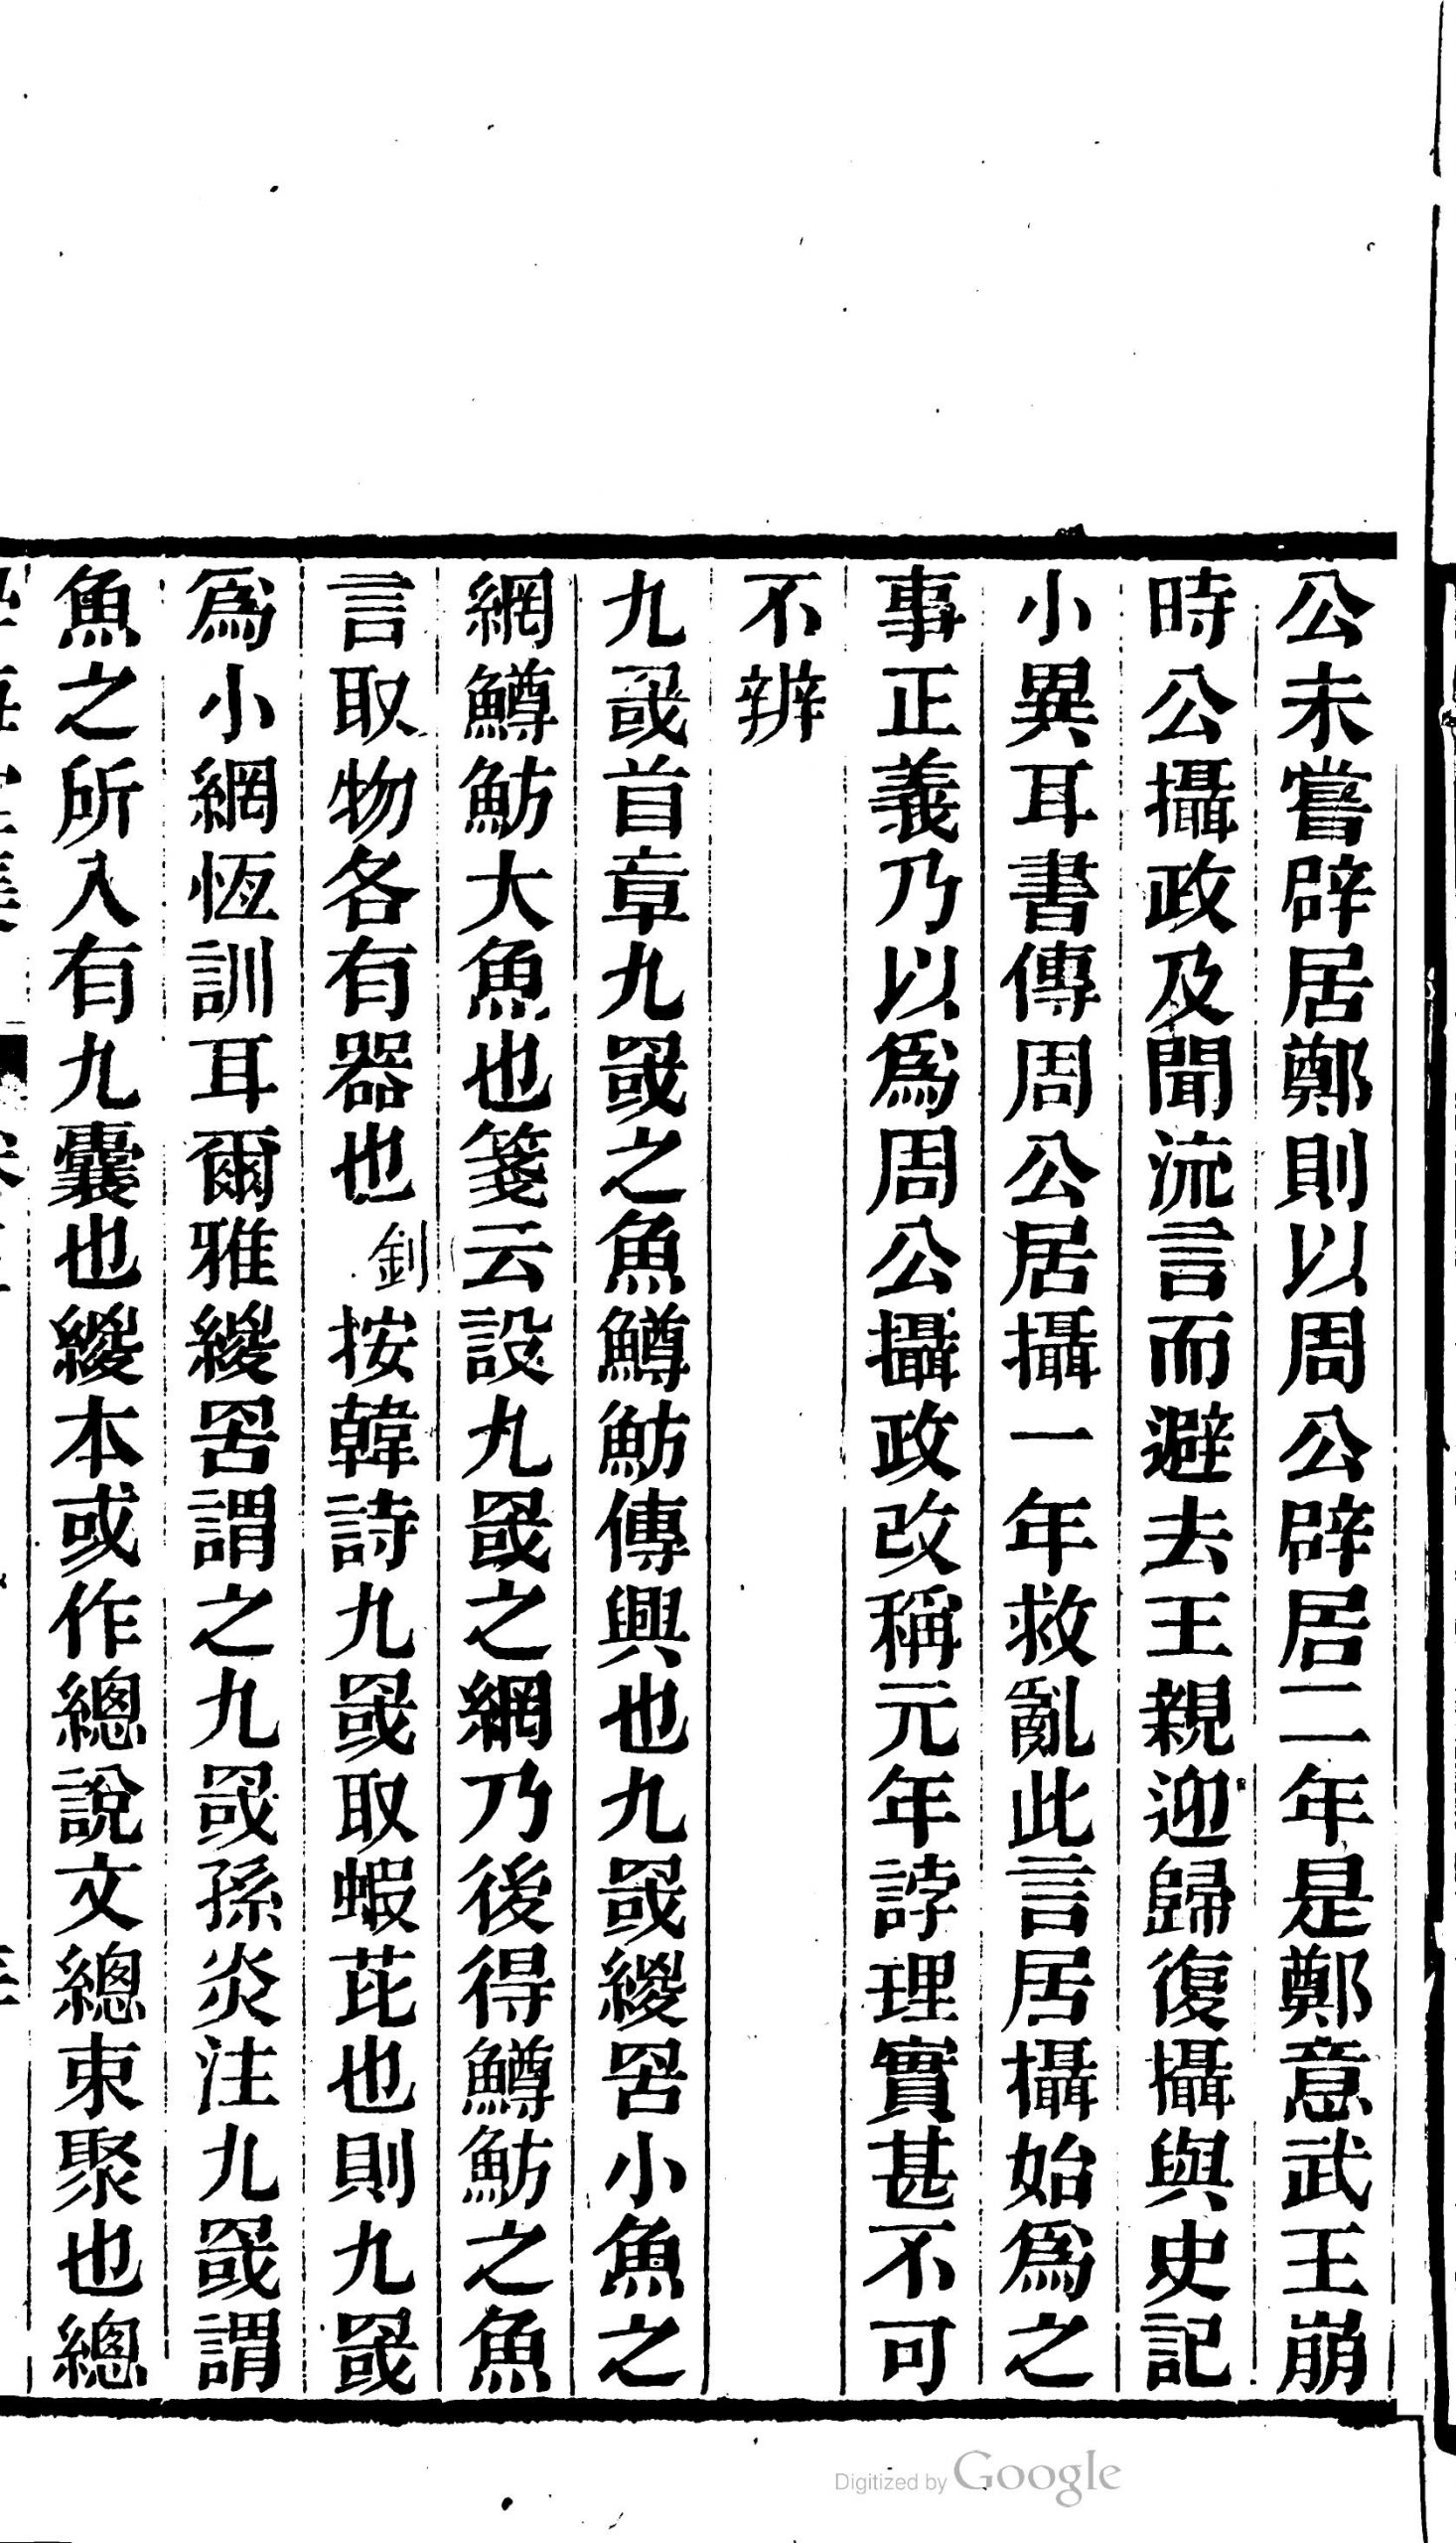 公未嘗辟居鄭則以周公辟居二年是鄭意武王崩
時公攝政及聞流言而避去王親迎歸復攝與史記
小異耳書傳周公居攝一年救亂此言居攝始爲之
事正義乃以爲周公攝政改稱元年誖理實甚不可
不辨
九罭首章九罭之魚鱒魴傳興也九罭緵罟小魚之
網鱒魴大魚也箋云設九罭之網乃後得鱒魴之魚
言取物各有器也釗按韓詩九罭取蝦芘也則九罭
爲小網恆訓耳爾雅緵罟謂之九罭孫炎注九罭謂
魚之所入有九囊也緵本或作總說文總束聚也總
Digitized by Google